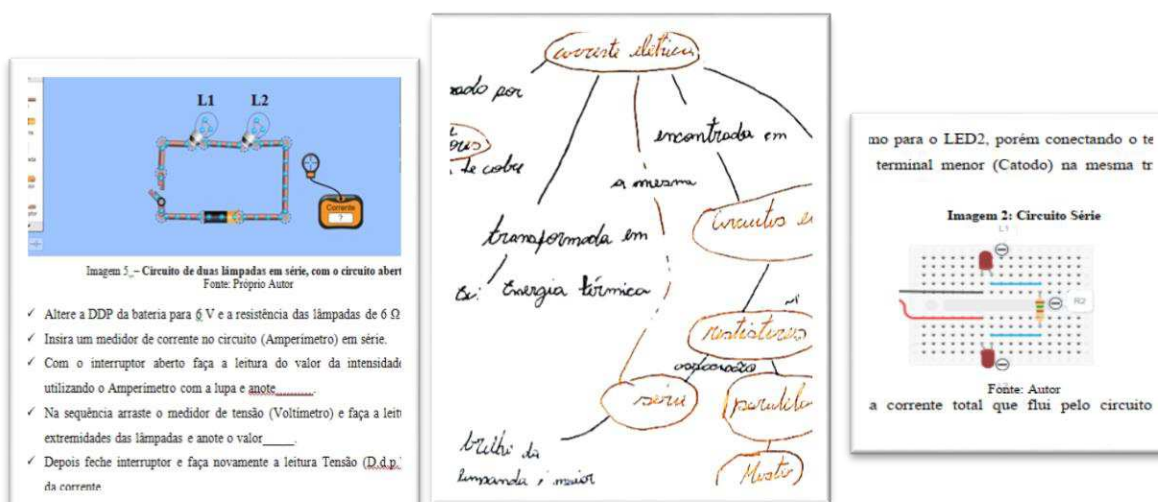 L1 L2
Corrente
?
Imagem 5_– Circuito de duas lâmpadas em série, com o circuito abert
Fonte: Próprio Autor
✓ Altere a DDP da bateria para 6 V e a resistência das lâmpadas de 6 Ω
✓ Insira um medidor de corrente no circuito (Amperímetro) em série.
✓ Com o interruptor aberto faça a leitura do valor da intensidade
utilizando o Amperímetro com a lupa e anote________.
✓ Na sequência arraste o medidor de tensão (Voltímetro) e faça a leit
extremidades das lâmpadas e anote o valor_____.
✓ Depois feche interruptor e faça novamente a leitura Tensão (D.d.p.
da corrente
corrente elétrica
zado por
de cobre
encontrada em
a mesma
transformada em
Circuitos e
Energia térmica
resistores
associação
série
paralelo
brilho da
lampanda é maior
Misto
mo para o LED2, porém conectando o te
terminal menor (Catodo) na mesma tr
Imagem 2: Circuito Série
L1
R2
Fonte: Autor
a corrente total que flui pelo circuito